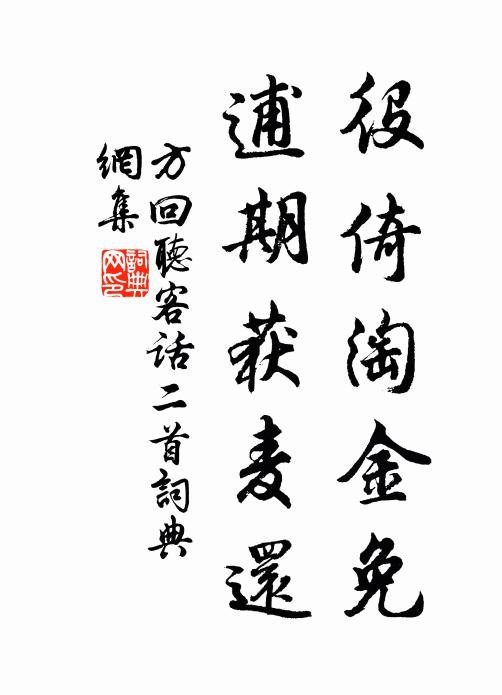 役倚淘金免
逋期获麦還
方回聽客话二首詞典
網集
詞典
网印